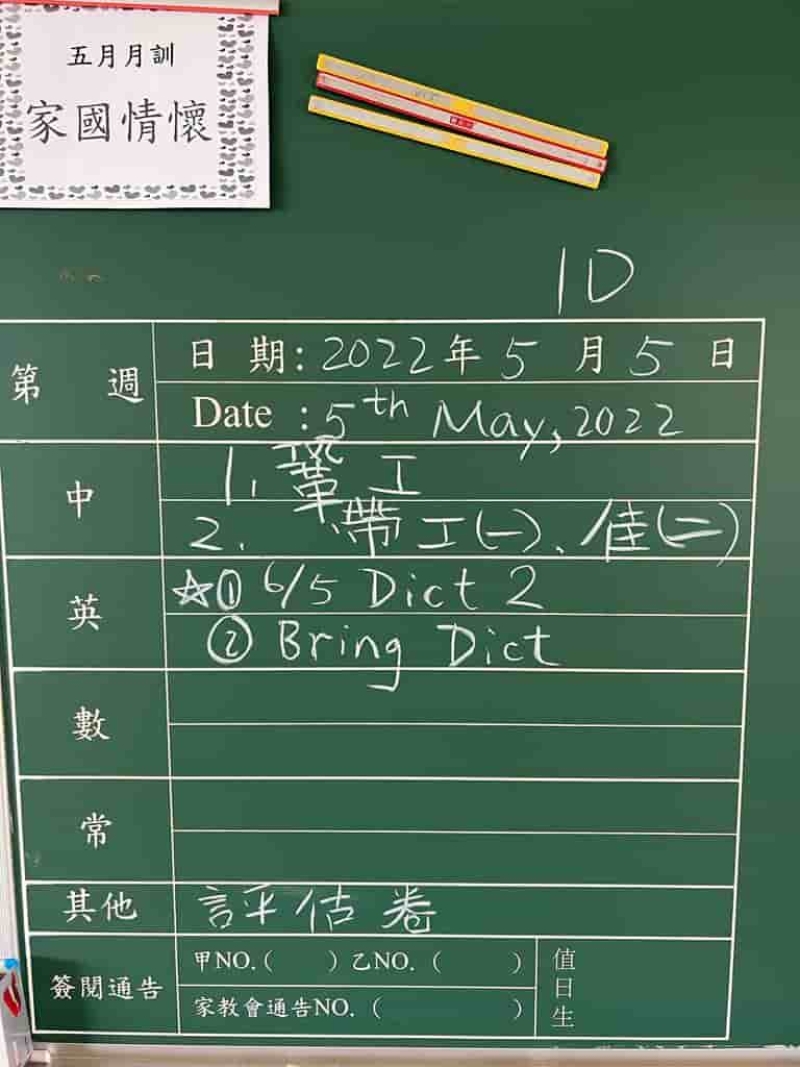 五月月訓
家國情懷
1D
第 週
日 期: 2022年 5 月 5 日
Date : 5th May, 2022
中
1. 鞏工
2. 帶工(一)、佳(二)
英
☆① 6/5 Dict 2
② Bring Dict
數
常
其他
評估卷
簽閱通告
甲NO.( ) 乙NO. ( )
家教會通告NO. ( )
值日生